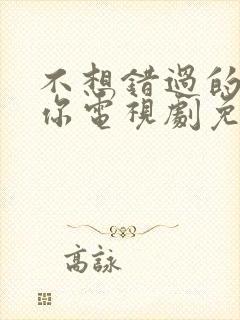 不想錯過的
你電視劇免
高詠